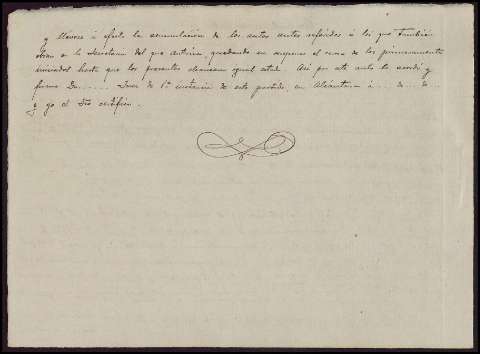 y llévese á efecto la acumulación de los autos antes referidos á los que tambien
obran en la Secretaria del que autoriza, quedando en suspenso el curso de los primeramente
iniciados hasta que los presentes alcancen igual estado. Así por este auto lo acordó y
firma Dn....... Juez de 1ª instancia de este partido, en Alcántara á ... de ... de ...
y yo el Srio certifico.